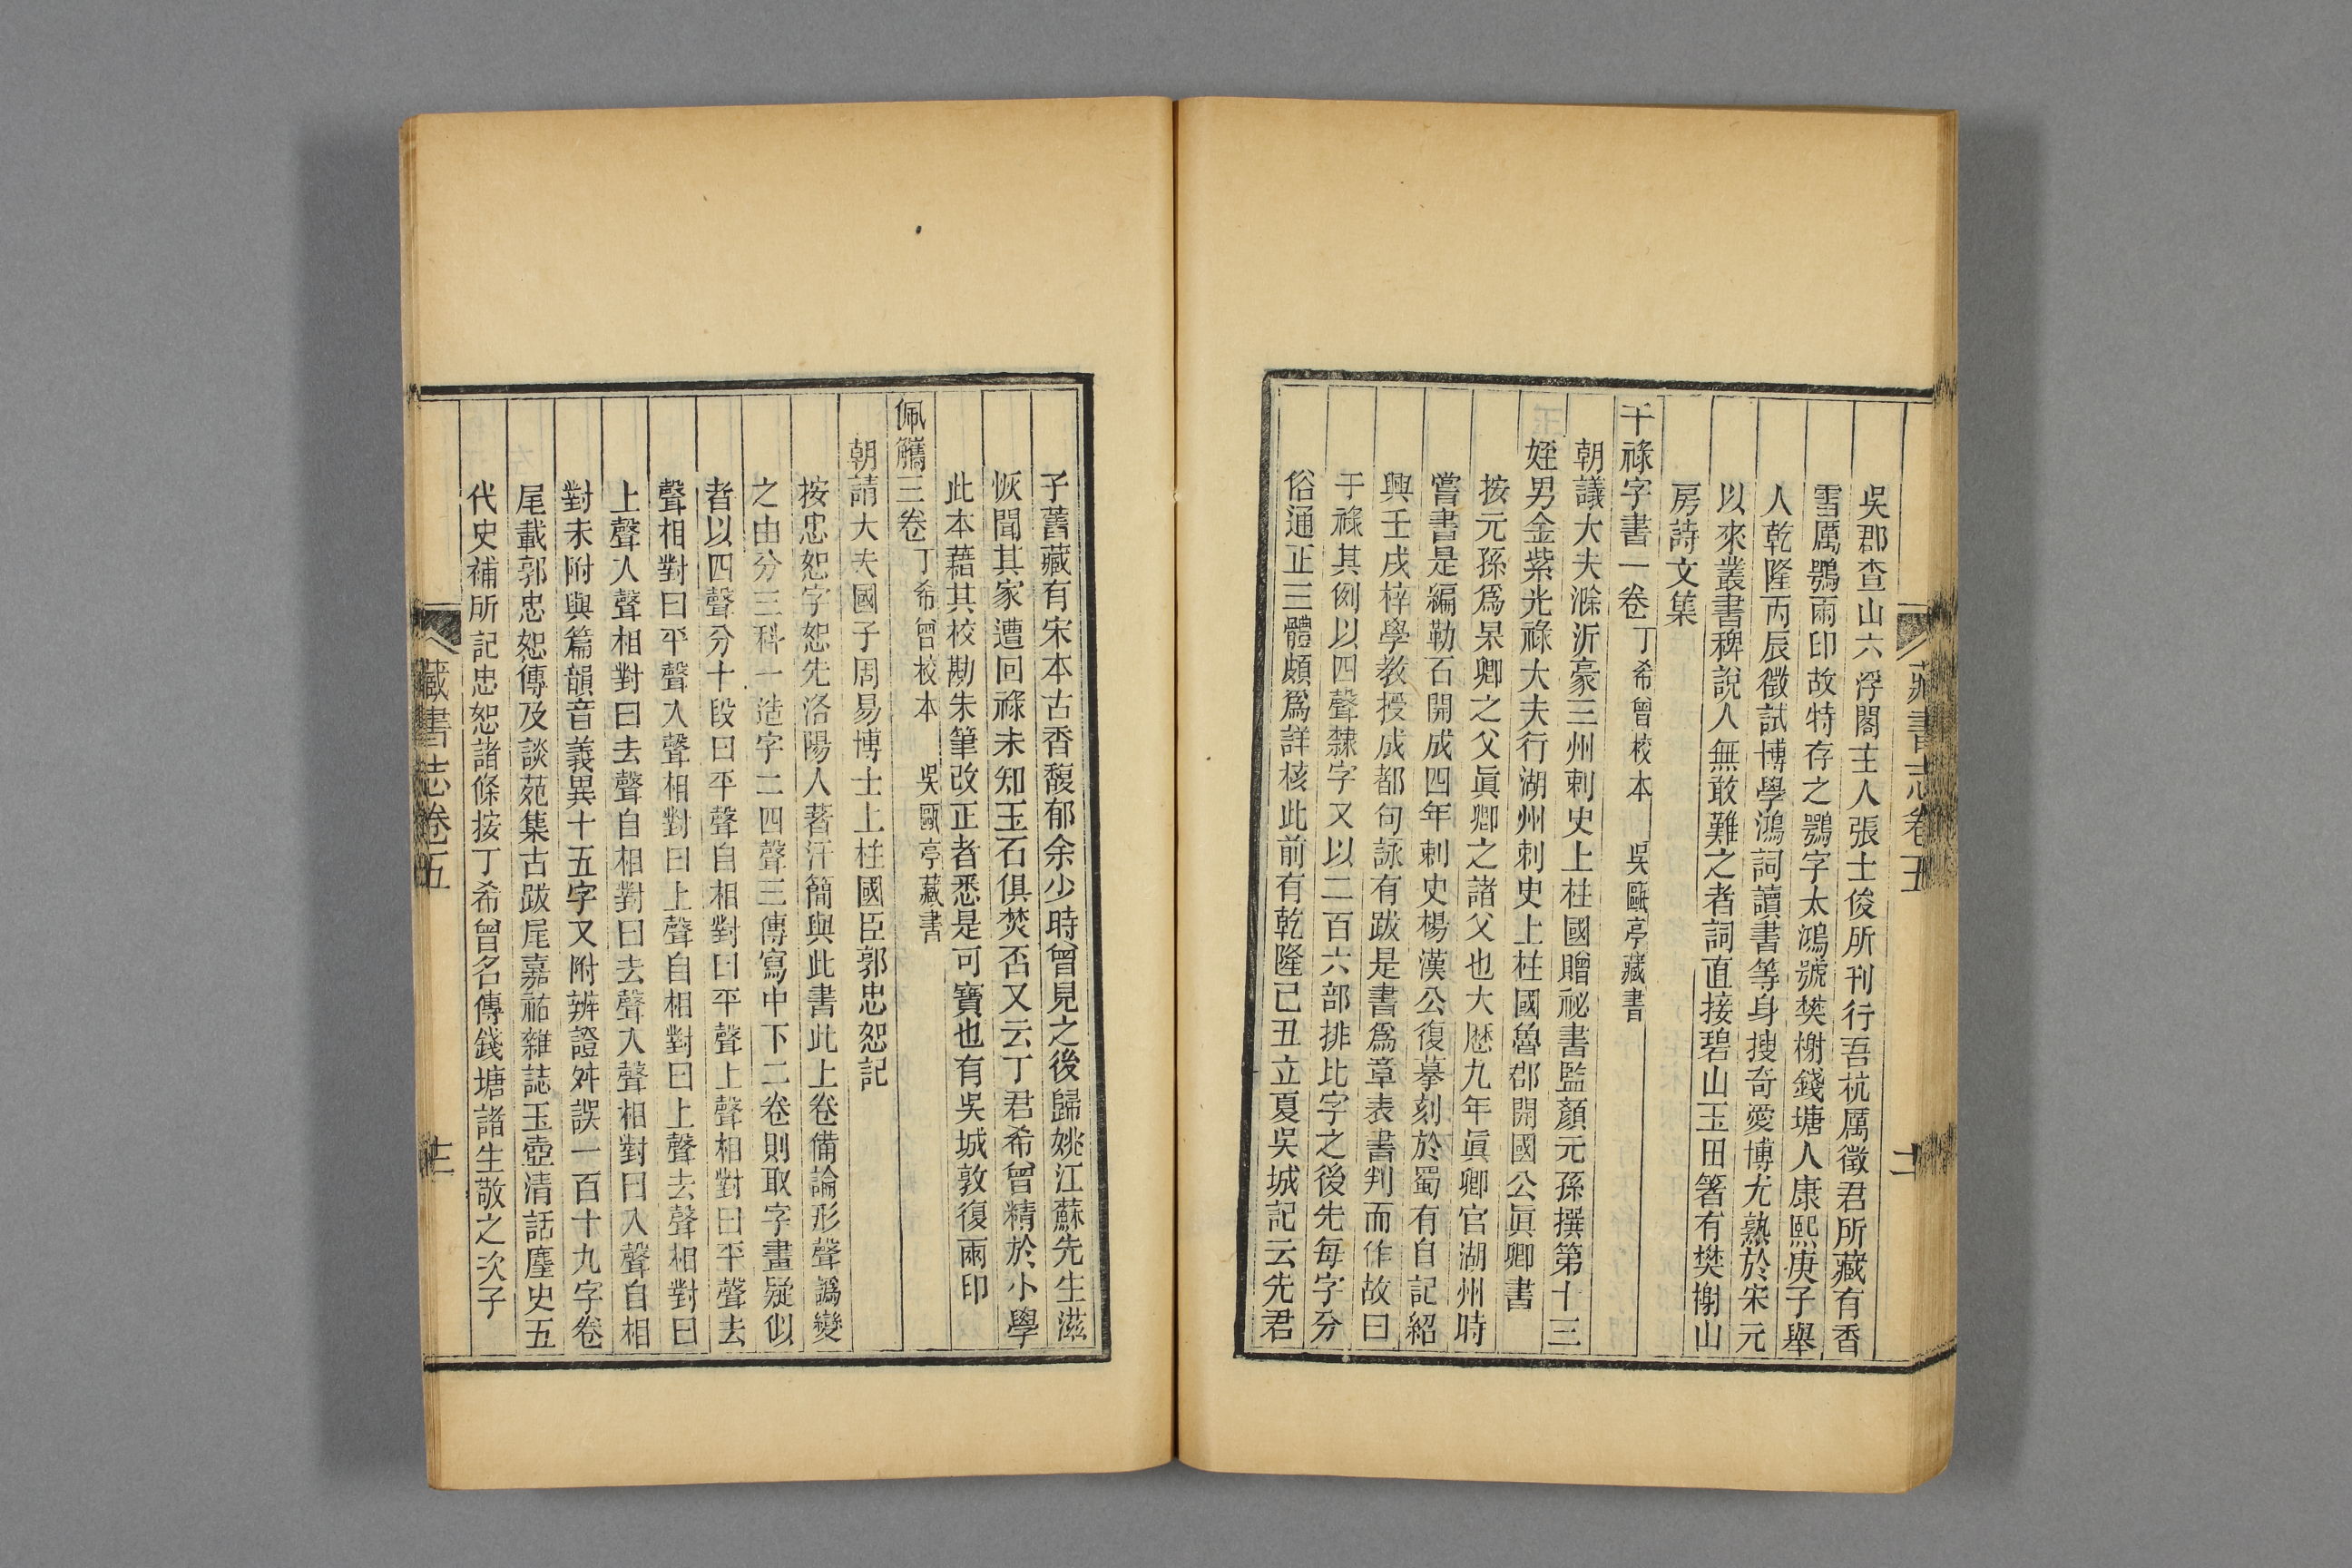 藏書志卷五
吳郡査山六浮閣主人張士俊所刊行吾杭厲徵君所藏有香
雪厲鶚兩印故特存之鶚字太鴻號樊榭錢塘人康熙庚子舉
人乾隆丙辰徵試博學鴻詞讀書等身搜奇愛博尤熟於宋元
以來叢書稗說人無敢難之者詞直接碧山玉田箸有樊榭山
房詩文集
干祿字書一卷 丁希曾校本 吳甌亭藏書
朝議大夫滁沂豪三州刺史上柱國贈祕書監顏元孫撰第十三
姪男金紫光祿大夫行湖州刺史上柱國魯郡開國公眞卿書
按元孫爲杲卿之父眞卿之諸父也大歷九年眞卿官湖州時
嘗書是編勒石開成四年刺史楊漢公復摹刻於蜀有自記紹
興壬戌梓學教授成都句詠有跋是書爲章表書判而作故曰
干祿其例以四聲隸字又以二百六部排比字之後先每字分
俗通正三體頗爲詳核此前有乾隆己丑立夏吳城記云先君
子舊藏有宋本古香馥郁余少時曾見之後歸姚江蘇先生滋
恢聞其家遭回祿未知玉石俱焚否又云丁君希曾精於小學
此本藉其校勘朱筆改正者悉是可寶也有吳城敦復兩印
佩觿三卷 丁希曾校本 吳甌亭藏書
朝請大夫國子周易博士上柱國臣郭忠恕記
按忠恕字恕先洛陽人著汗簡與此書此上卷備論形聲譌變
之由分三科一造字二四聲三傳寫中下二卷則取字畫疑似
者以四聲分十段曰平聲自相對曰平聲上聲相對曰平聲去
聲相對曰平聲入聲相對曰上聲自相對曰上聲去聲相對曰
上聲入聲相對曰去聲自相對曰去聲入聲相對曰入聲自相
對末附與篇韻音義異十五字又附辨證舛誤一百十九字卷
尾載郭忠恕傳及談苑集古跋尾嘉祐雜誌玉壺清話麈史五
代史補所記忠恕諸條按丁希曾名傳錢塘諸生敬之次子
藏書志卷五